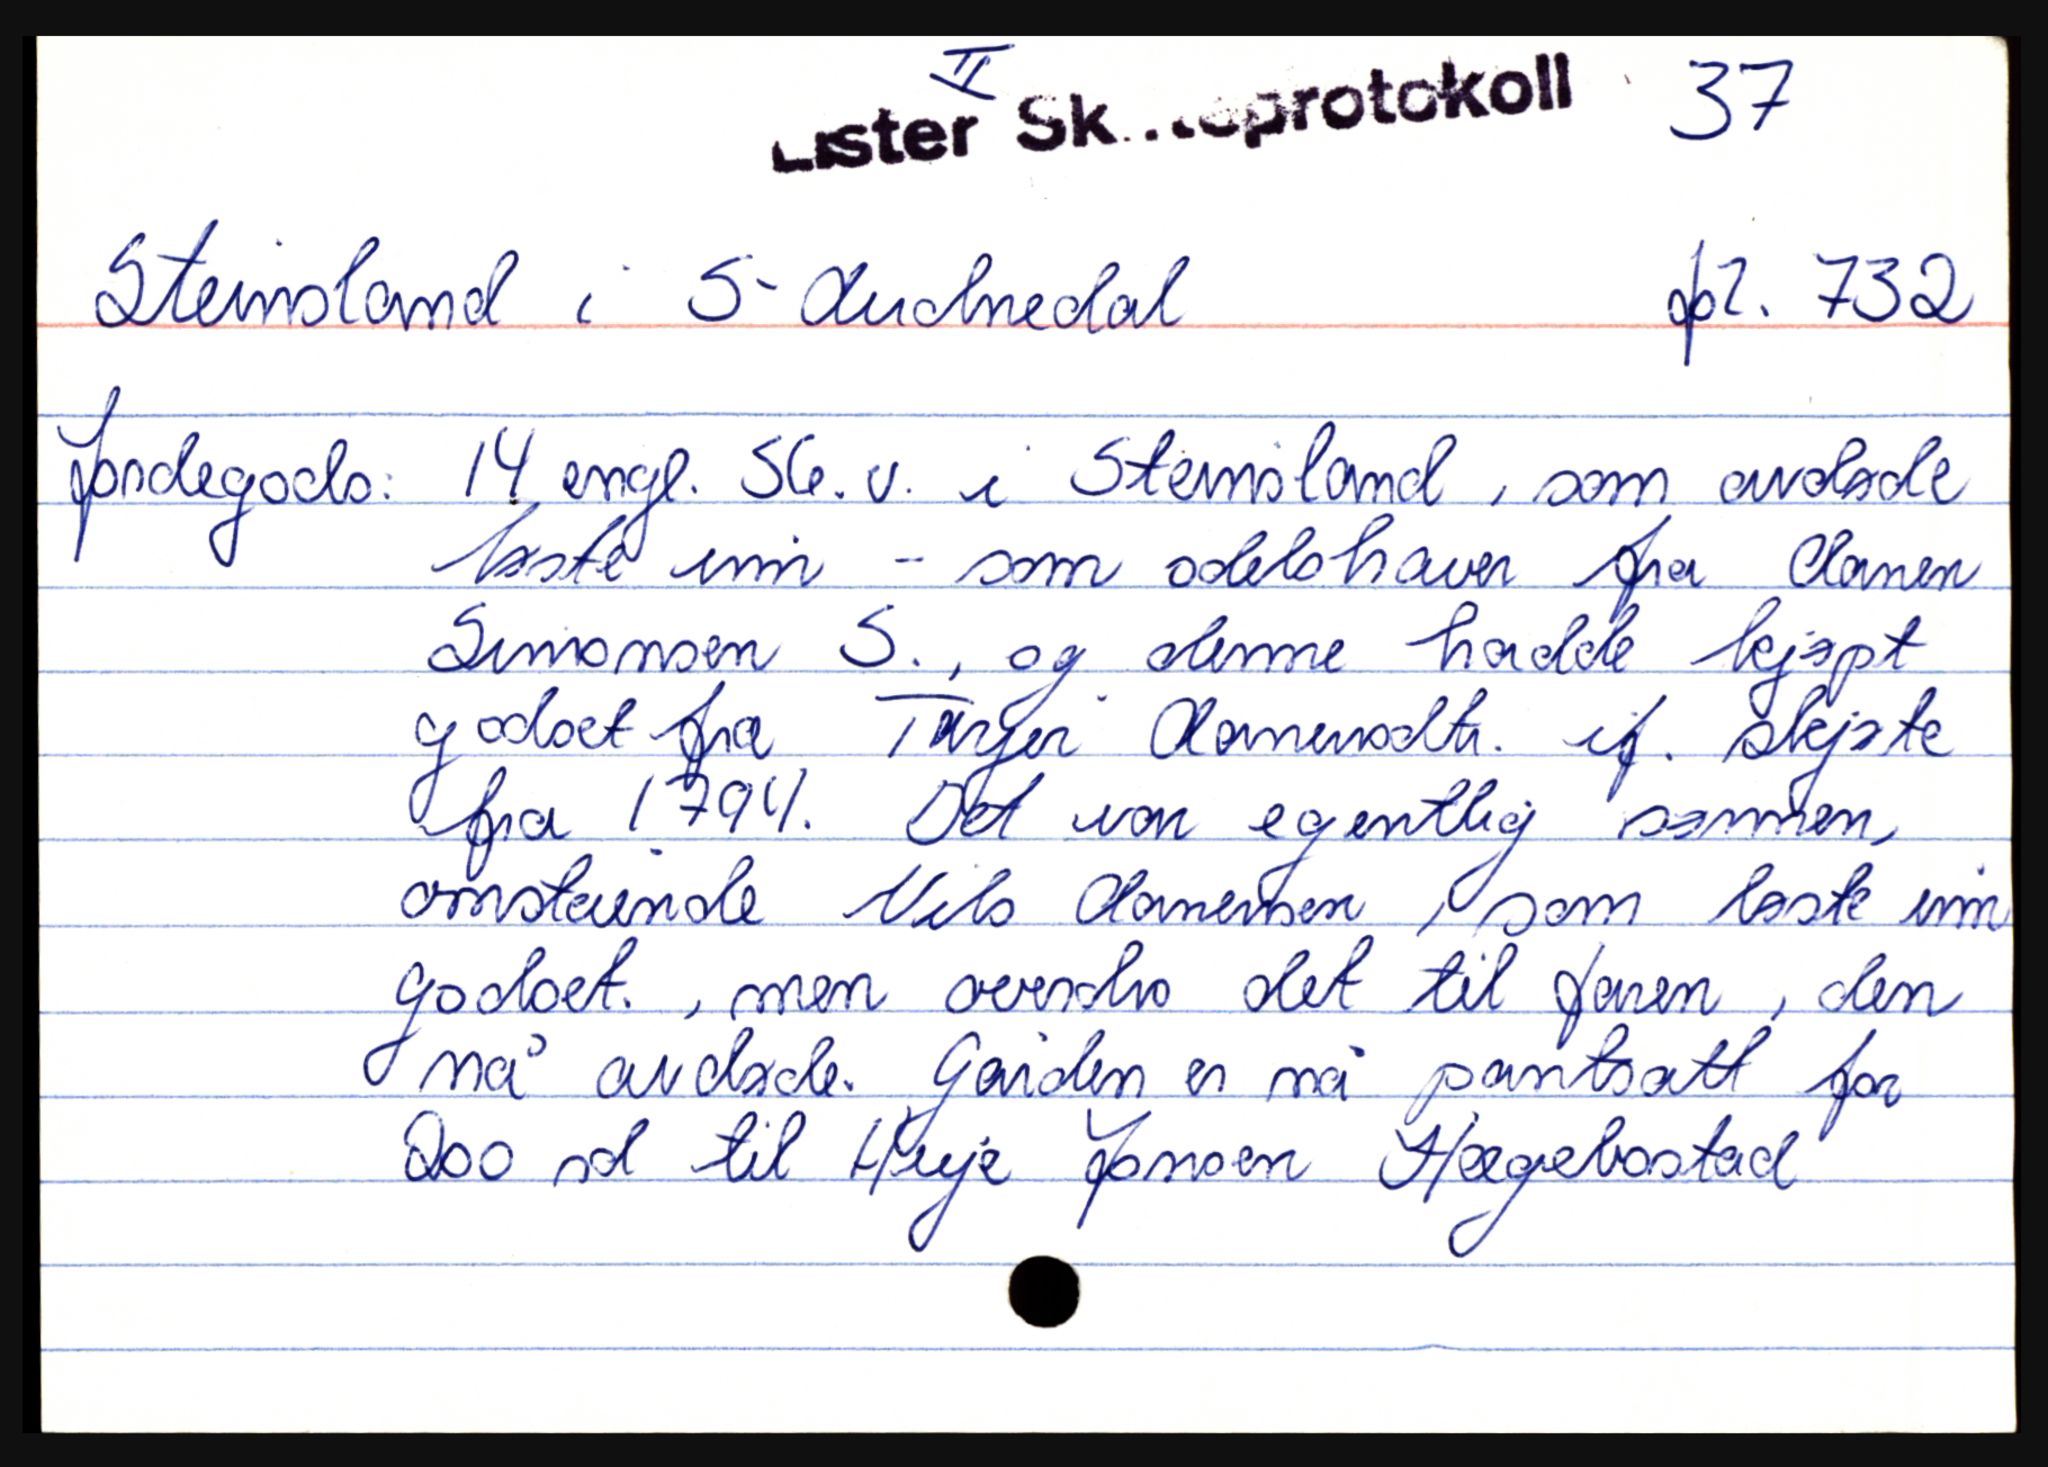 II
Lister Sk...teprotokoll 37
Steinsland i S-Audnedal fol. 732
Jordegods: 14 engl. Sk. v. i Steinsland, som avdøde
løste inn - som odelshaver fra Aanen
Simonsen S., og denne hadde kjøpt
godset fra Targer Aanensdtr. if. skjøte
fra 1794. Det var egentlig sønnen,
omstående Nils Aanensen, som løste inn
godset., men overdro det til faren, den
nå avdøde. Gården er nå pantsatt for
200 rd til Huje Jonsen Hægebostad